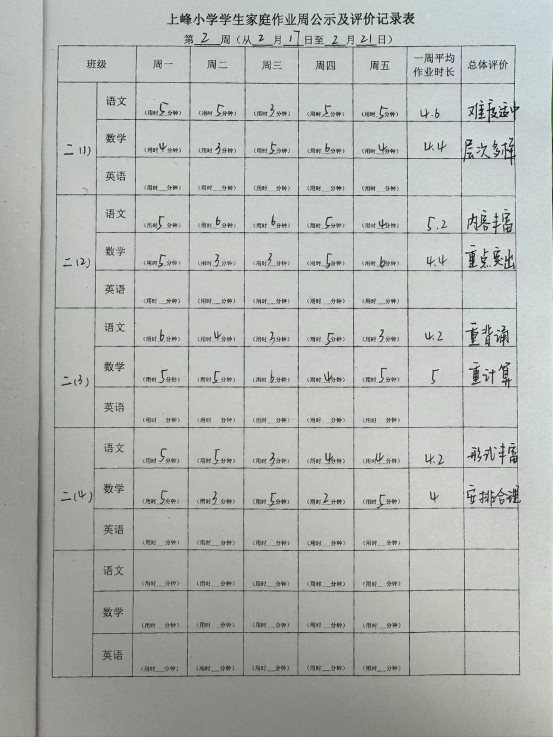 上峰小学学生家庭作业周公示及评价记录表
第 2 周（从 2 月 17 日至 2 月 21 日）
班级 周一 周二 周三 周四 周五 一周平均作业时长 总体评价
二（1） 语文 （用时5分钟） （用时5分钟） （用时3分钟） （用时5分钟） （用时5分钟） 4.6 难度适中
数学 （用时4分钟） （用时3分钟） （用时5分钟） （用时6分钟） （用时4分钟） 4.4 层次多样
英语 （用时__分钟） （用时__分钟） （用时__分钟） （用时__分钟） （用时__分钟）
二（2） 语文 （用时5分钟） （用时6分钟） （用时6分钟） （用时5分钟） （用时4分钟） 5.2 内容丰富
数学 （用时5分钟） （用时3分钟） （用时3分钟） （用时5分钟） （用时6分钟） 4.4 重点突出
英语 （用时__分钟） （用时__分钟） （用时__分钟） （用时__分钟） （用时__分钟）
二（3） 语文 （用时6分钟） （用时4分钟） （用时3分钟） （用时5分钟） （用时3分钟） 4.2 重背诵
数学 （用时5分钟） （用时5分钟） （用时6分钟） （用时4分钟） （用时5分钟） 5 重计算
英语 （用时__分钟） （用时__分钟） （用时__分钟） （用时__分钟） （用时__分钟）
二（4） 语文 （用时5分钟） （用时5分钟） （用时3分钟） （用时4分钟） （用时4分钟） 4.2 形式丰富
数学 （用时5分钟） （用时3分钟） （用时5分钟） （用时2分钟） （用时5分钟） 4 安排合理
英语 （用时__分钟） （用时__分钟） （用时__分钟） （用时__分钟） （用时__分钟）
语文 （用时__分钟） （用时__分钟） （用时__分钟） （用时__分钟） （用时__分钟）
数学 （用时__分钟） （用时__分钟） （用时__分钟） （用时__分钟） （用时__分钟）
英语 （用时__分钟） （用时__分钟） （用时__分钟） （用时__分钟） （用时__分钟）